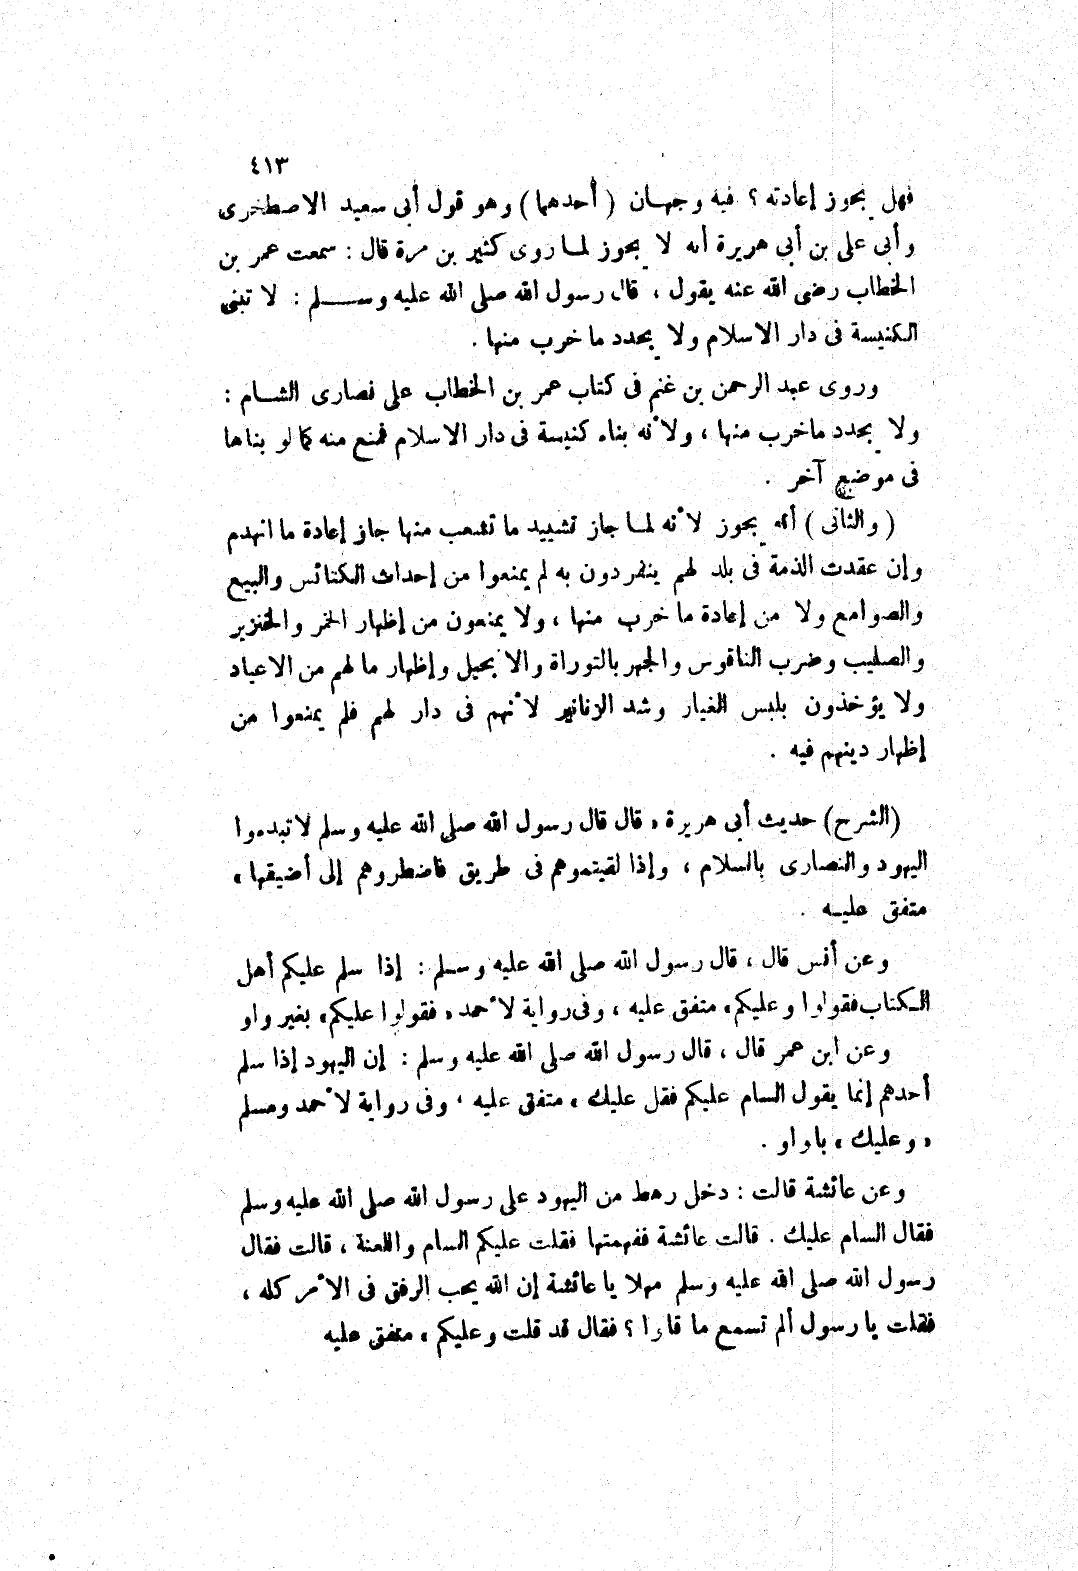 ٤١٣
فهل يجوز إعادته ؟ فيه وجهـان ( أحدهما ) وهو قول أبى سعيد الاصطخرى
وأبى على بن أبى هريرة أنه لا يجوز لمـا روى كثير بن مرة قال : سمعت عمر بن
الخطاب رضى الله عنه يقول ، قال رسول الله صلى الله عليه وســــلم : لا تبنى
الكنيسة فى دار الاسلام ولا يجدد ما خرب منها .
وروى عبد الرحمن بن غنم فى كتاب عمر بن الخطاب على نصارى الشـام :
ولا يجدد ماخرب منها ، ولأنه بناء كنيسة فى دار الاسلام فمنع منه كما لو بناها
فى موضع آخر .
( والثانى ) أنه يجوز لأنه لمـا جاز تشييد ما تشعب منها جاز إعادة ما انهدم
وإن عقدت الذمة فى بلد لهم ينفردون به لم يمنعوا من إحداث الكنائس والبيع
والصوامع ولا من إعادة ما خرب منها ، ولا يمنعون من إظهار الخمر والخنزير
والصليب وضرب الناقوس والجهر بالتوراة والانجيل وإظهار ما لهم من الاعياد
ولا يؤخذون بلبس الغيار وشد الزنانير لأنهم فى دار لهم فلم يمنعوا من
إظهار دينهم فيه .
(الشرح) حديث أبى هريرة « قال قال رسول الله صلى الله عليه وسلم لا تبدءوا
اليهود والنصارى بالسلام ، وإذا لقيتموهم فى طريق فاضطروهم إلى أضيقها »
متفق عليـه .
وعن أنس قال ، قال رسول الله صلى الله عليه وسـلم : إذا سلم عليكم أهل
الـكتاب فقولوا وعليكم» متفق عليه ، وفى رواية لأحمد « فقولوا عليكم» بغير واو
وعن ابن عمر قال ، قال رسول الله صلى الله عليه وسلم : إن اليهود إذا سلم
أحدهم إنما يقول السام عليكم فقل عليك » متفق عليه ، وفى رواية لأحمد ومسلم
« وعليك » بالواو .
وعن عائشة قالت : دخل رهط من اليهود على رسول الله صلى الله عليه وسلم
فقال السام عليك . قالت عائشة ففهمتها فقلت عليكم السام واللعنة ، قالت فقال
رسول الله صلى الله عليه وسلم مهلا يا عائشة إن الله يحب الرفق فى الأمر كله ،
فقلت يا رسول ألم تسمع ما قالوا ؟ فقال قد قلت وعليكم » متفق عليه